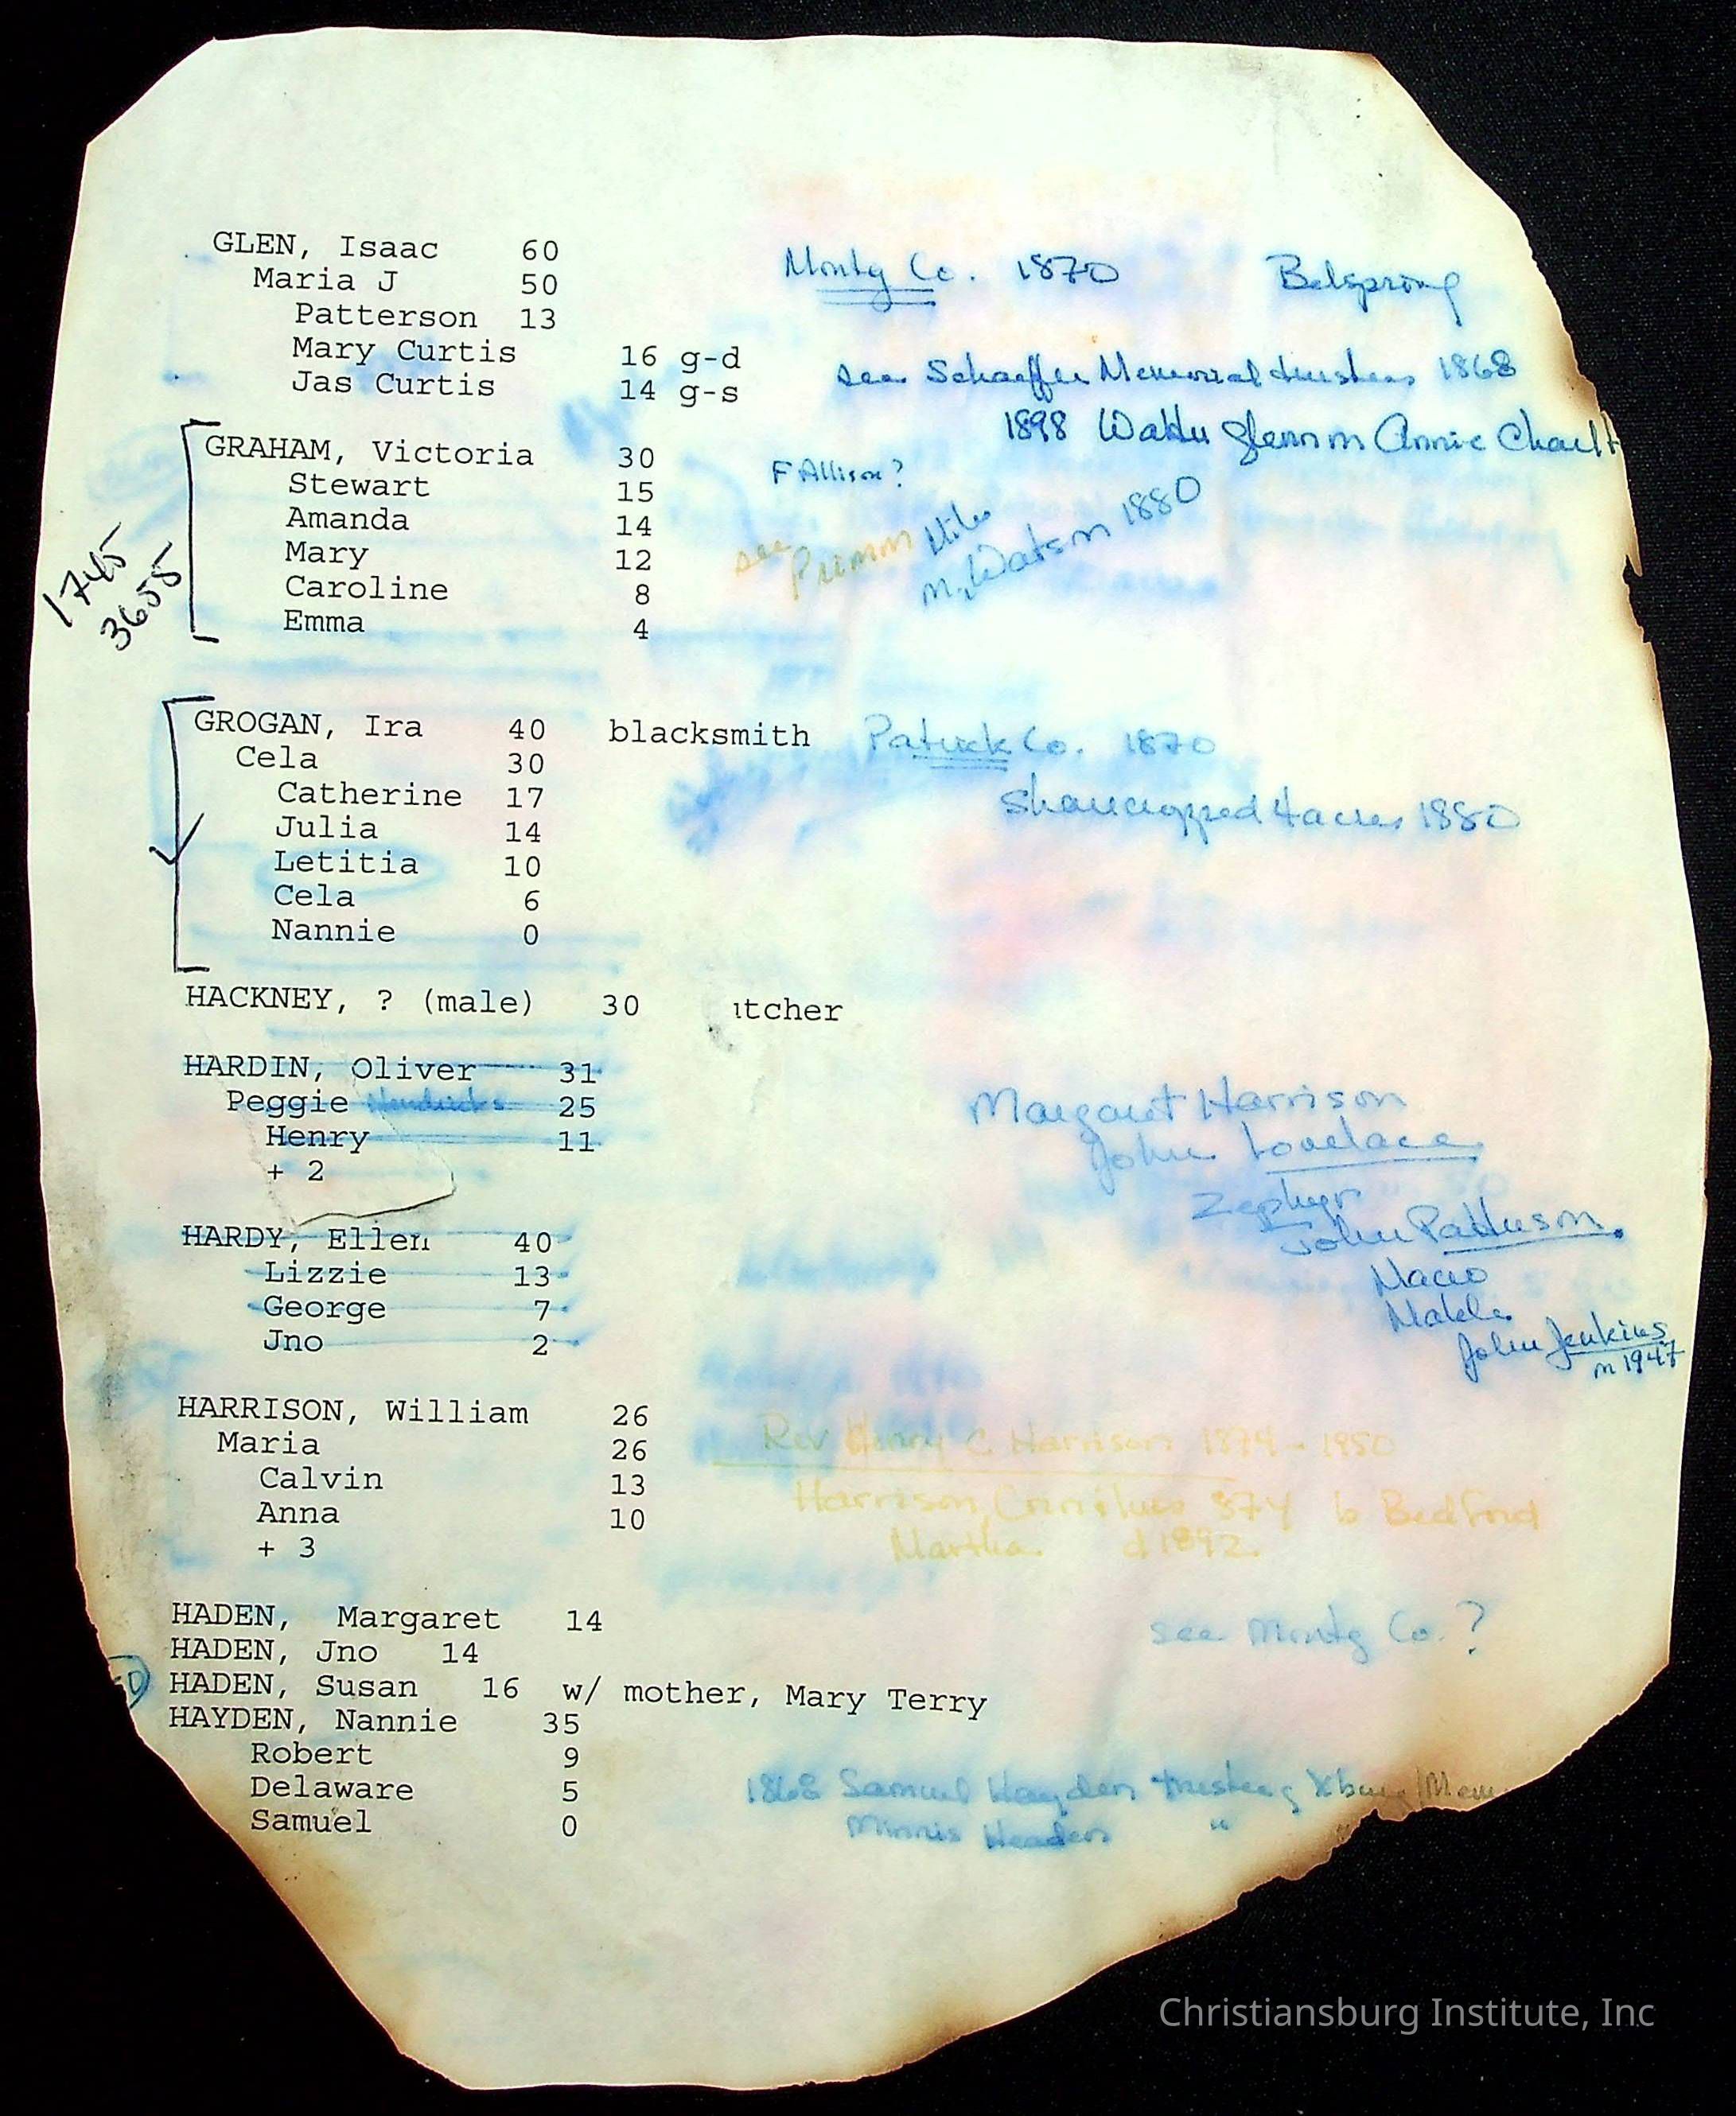 GLEN, Isaac 60 Montg Co. 1870 Belspring
Maria J 50
Patterson 13
Mary Curtis 16 g-d see Schaeffer Memorial trustees 1868
Jas Curtis 14 g-s
1898 Walter Glenn m Annie
GRAHAM, Victoria 30 F Allison?
Stewart 15
Amanda 14 see
Mary 12 m. Watson 1880
Caroline 8
Emma 4
1745
3655
GROGAN, Ira 40 blacksmith Patrick Co. 1870
Cela 30
Catherine 17 sharecropped 4 acres 1880
Julia 14
Letitia 10
Cela 6
Nannie 0
HACKNEY, ? (male) 30 tcher
HARDIN, Oliver 31
Peggie Hendricks 25 Margaret Harrison
Henry 11 John Lovelace
+ 2
Zephyr
HARDY, Ellen 40 John Patterson
Lizzie 13
George 7
Jno 2 John Jenkins
m 1947
HARRISON, William 26
Maria 26 Rev Henry C Harrison 1874-1950
Calvin 13
Anna 10 Harrison, b Bedford
+ 3 Martha d 1892
HADEN, Margaret 14 see Montg Co. ?
HADEN, Jno 14
HADEN, Susan 16 w/ mother, Mary Terry
HAYDEN, Nannie 35
Robert 9
Delaware 5 1868 Samuel Hayden trustee Xburg Mem
Samuel 0 Minnis Headen "
Christiansburg Institute, Inc